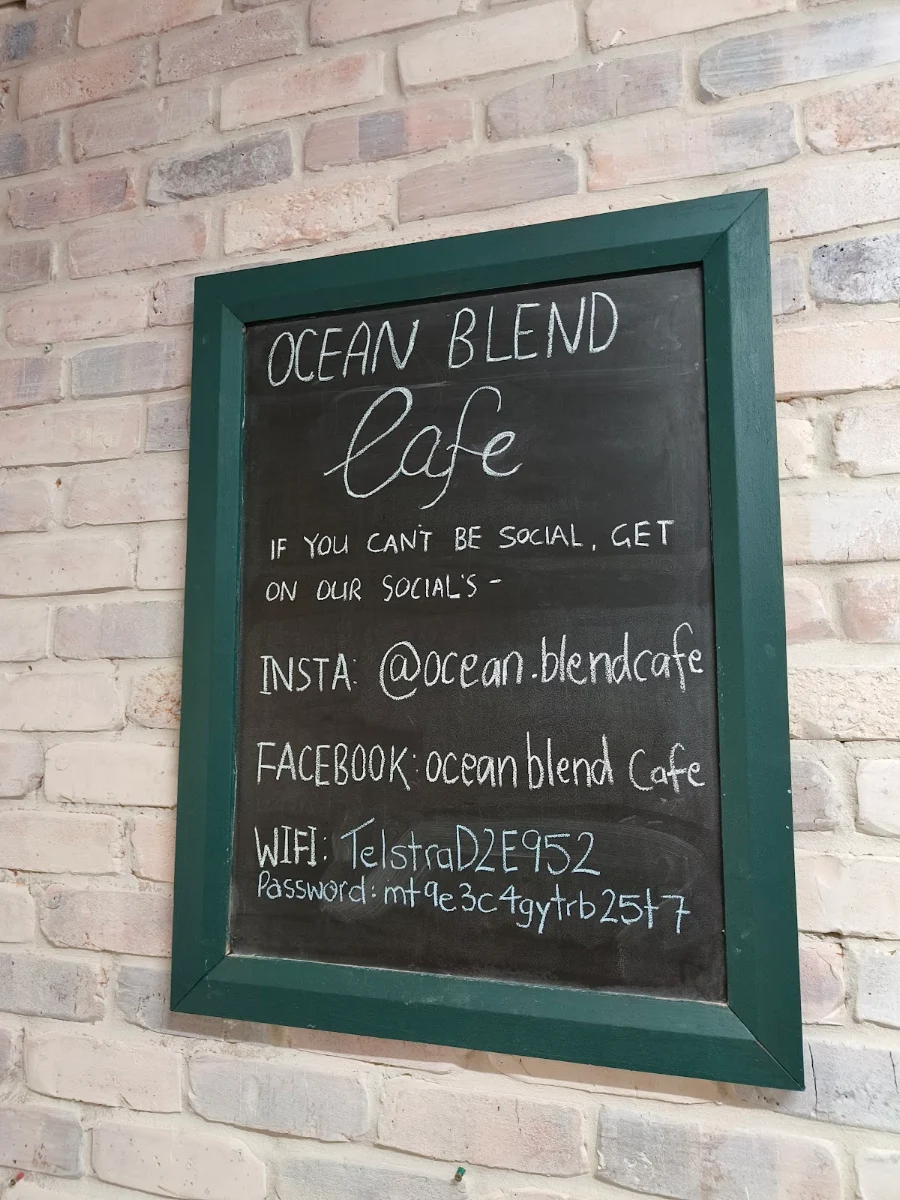 OCEAN BLEND
Cafe
IF YOU CAN'T BE SOCIAL, GET
ON OUR SOCIAL'S -
INSTA: @ocean.blendcafe
FACEBOOK: ocean blend Cafe
WIFI: TelstraD2E952
Password: mt9e3c4gytrb25t7